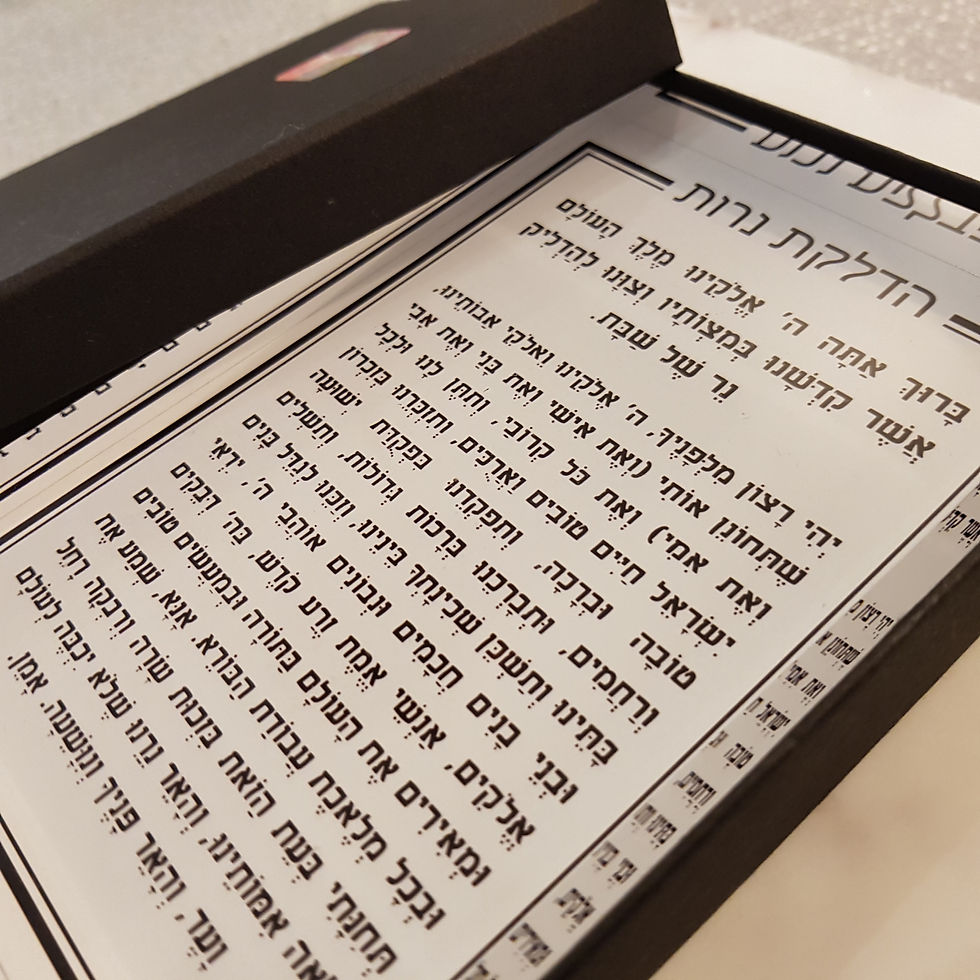 הדלקת נרות
בָּרוּךְ אַתָּה ה' אֱלֹקֵינוּ מֶלֶךְ הָעוֹלָם
אֲשֶׁר קִדְּשָׁנוּ בְּמִצְוֹתָיו וְצִוָּנוּ לְהַדְלִיק
נֵר שֶׁל שַׁבָּת.
יְהִי רָצוֹן מִלְּפָנֶיךָ, ה' אֱלֹקֵינוּ וֵאלֹקֵי אֲבוֹתֵינוּ,
שֶׁתְּחוֹנֵן אוֹתִי (וְאֶת אִישִׁי וְאֶת בָּנַי וְאֶת אָבִי
וְאֶת אִמִּי) וְאֶת כָּל קְרוֹבַי, וְתִתֶּן לָנוּ וּלְכָל
יִשְׂרָאֵל חַיִּים טוֹבִים וַאֲרֻכִּים, וְתִזְכְּרֵנוּ בְּזִכְרוֹן
טוֹבָה וּבְרָכָה, וְתִפְקְדֵנוּ בִּפְקֻדַּת יְשׁוּעָה
וְרַחֲמִים, וּתְבָרְכֵנוּ בְּרָכוֹת גְּדוֹלוֹת, וְתַשְׁלִים
בָּתֵּינוּ וְתַשְׁכֵּן שְׁכִינָתְךָ בֵּינֵינוּ, וְזַכֵּנוּ לְגַדֵּל בָּנִים
וּבְנֵי בָנִים חֲכָמִים וּנְבוֹנִים אוֹהֲבֵי ה', יִרְאֵי
אֱלֹקִים, אַנְשֵׁי אֱמֶת זֶרַע קֹדֶשׁ, בַּה' דְּבֵקִים
וּמְאִירִים אֶת הָעוֹלָם בַּתּוֹרָה וּבְמַעֲשִׂים טוֹבִים
וּבְכָל מְלֶאכֶת עֲבוֹדַת הַבּוֹרֵא. אָנָּא, שְׁמַע אֶת
תְּחִנָּתִי בָּעֵת הַזֹּאת בִּזְכוּת שָׂרָה וְרִבְקָה רָחֵל
אִמּוֹתֵינוּ, וְהָאֵר נֵרֵנוּ שֶׁלֹּא יִכְבֶּה לְעוֹלָם
וָעֶד, וְהָאֵר פָּנֶיךָ וְנִוָּשֵׁעָה, אָמֵן.